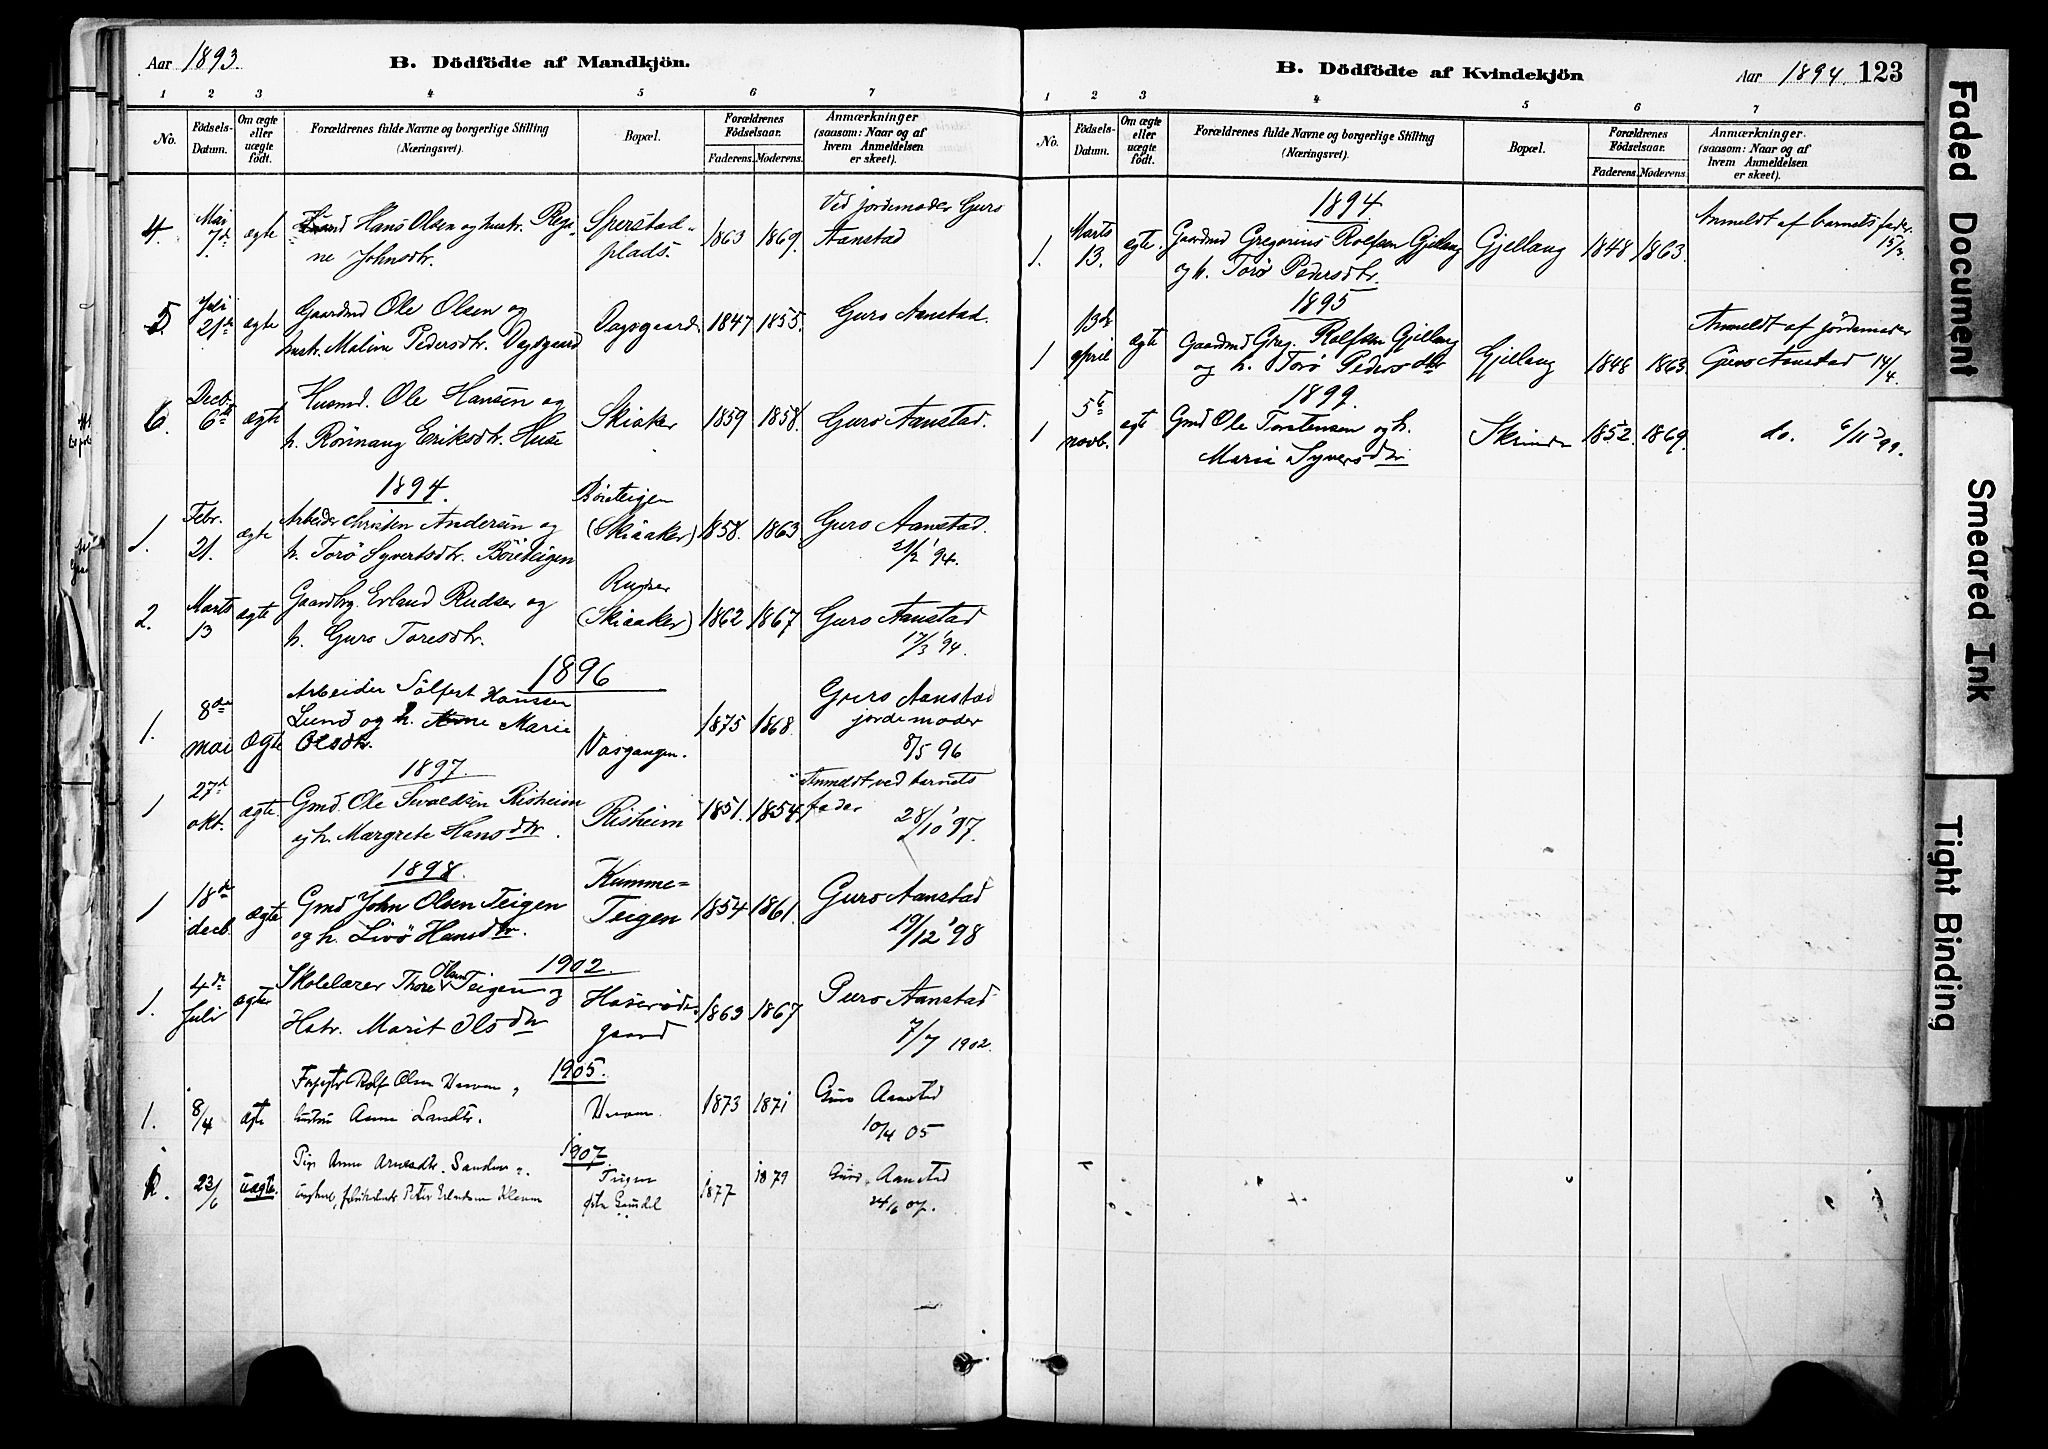 Aar 1893.
B. Dödfödte af Mandkjön.
1 2 3 4 5 6 7
No.
Fødsels-Datum.
Om ægte eller uægte født.
Forældrenes fulde Navne og borgerlige Stilling (Næringsvei).
Bopæl.
Forældrenes Fødselsaar.
Faderens. Moderens.
Anmærkninger (saasom: Naar og af hvem Anmeldelsen er skeet).
4. Mai 7de ægte Hans Olsen og hustr. Regi- Sperstad- 1863 1869. Ved jordemoder Guro
ne Johnsdtr. plads. Aanstad
5. Juli 21de ægte Gaardmd Ole Olsen og Dagsgaard 1847 1855. Guro Aanstad.
hustr. Maline Pedersdtr. Dagsgaard
6. Decb. 6te ægte Husmd. Ole Hansen og Skiaker 1859 1858. Guro Aanstad.
h. Rönnaug Eriksdtr. Huse
1894.
1. Febr. 21. ægte Arbeider Christen Andersen og Böieteigen (Skiaaker) 1858. 1863 Guro Aanstad.
h. Torö Syvertsdtr. Böieteigen 21/2 '94.
2. Marts 13 ægte Gaardbrg. Erland Rudser og Rudser (Skiaaker) 1862 1867 Guro Aanstad
h. Guro Toresdtr. 17/3 '94.
1896
1. 8de mai Ægte Arbeider Sölfest Hansen 1875 1868. Guro Aanstad
Lund og h. Anne Marie jordemoder
Olsdtr. Vasgangen. 8/5 96
1897.
1 27de okt. ægte. Gmd. Ole Ivaldsen Risheim Risheim 1851. 1854. Anmeldt ved barnets fader
og h. Margrete Hansdtr. 28/10 '97.
1898.
1 18de decb. ægte Gmd John Olsen Teigen Kumme= 1854 1861. Guro Aanstad
og h. Livö Hansdtr. Teigen 19/12 '98
1902.
1. 4de Juli ægte Skolelærer Thore Olsen Teigen og 1863 1867 Guro Aanstad
Hstr. Marit Olsdtr gaard 7/7 1902.
1905.
1. 8/4 ægte Rolf Olsen 1873 1871 Guro Aanstad
hustru Anne 10/4 05
1907.
23/6 uægte. Pige Anne Arnesdtr. Teigen 1877 1879 Guro Aanstad
Peter Erlandsen 24/6 07.
B. Dödfödte af Kvindekjön
Aar 1894. 123
1 2 3 4 5 6 7
No.
Fødsels-Datum.
Om ægte eller uægte født.
Forældrenes fulde Navne og borgerlige Stilling (Næringsvei).
Bopæl.
Forældrenes Fødselsaar.
Faderens. Moderens.
Anmærkninger. (saasom: Naar og af hvem Anmeldelsen er skeet).
1894
1. Marts 13. ægte. Gaardmd Gregorius Rolfsen Gjellang Gjellang 1848 1863. Anmeldt af barnets fader.
og h. Torö Pedersdtr. 15/3.
1895
1 13de april ægte Gaardmd Greg. Rolfsen Gjellang Gjellang 1848 1863. Anmeldt af jordemoder
og h. Torö Pedersdtr Guro Aanstad 14/4.
1899.
1 5te novb. ægte Gmd Ole Torstensen og h. 1852. 1869. do. 6/11 99.
Mari Syversdtr
Faded Document
Smeared Ink
Tight Binding